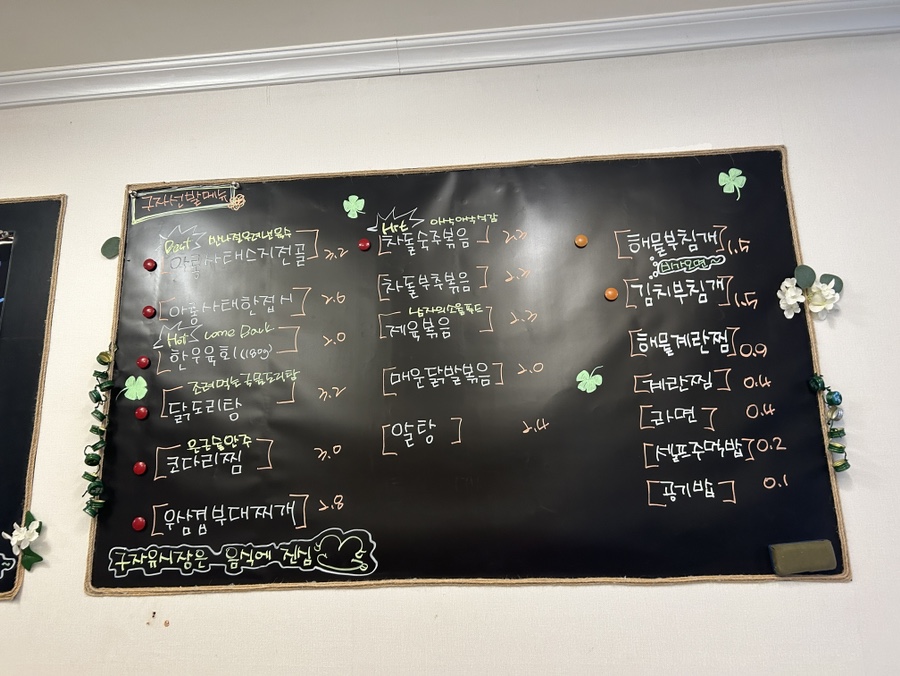 구자선발메뉴
Best
아롱사태스지전골 3.2
아롱사태한접시 2.6
Hot Come Back
한우육회(180g) 3.0
조려먹는국물도리탕
닭도리탕 3.2
은근술안주
코다리찜 3.0
우삼겹부대찌개 2.8
구자유시장은 음식에 진심
Hot 아삭아삭식감
차돌숙주볶음 2.3
차돌부추볶음 2.3
남자의소울푸드
제육볶음 2.3
매운닭발볶음 2.0
알탕 2.4
해물부침개 1.5
비가오면~
김치부침개 1.5
해물계란찜 0.9
계란찜 0.4
라면 0.4
셀프주먹밥 0.2
공기밥 0.1